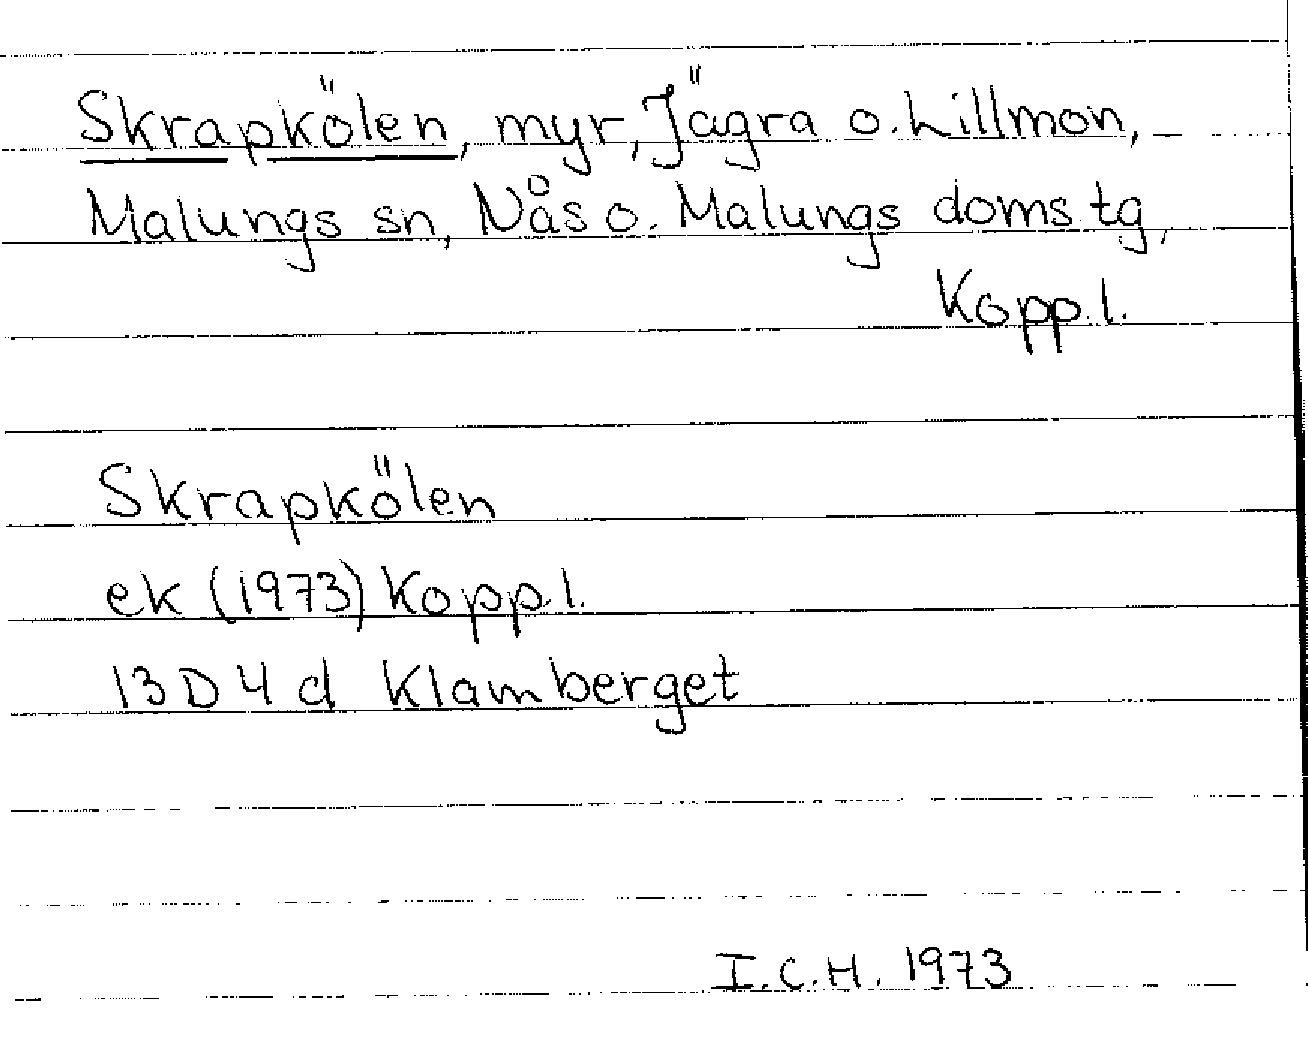 Skrapkölen, myr, Jägra o. Lillmon,
Malungs sn, Nås o. Malungs doms.tg,
Kopp.l.
Skrapkölen
ek (1973) Kopp.l.
13D4d Klamberget
I.C.H. 1973